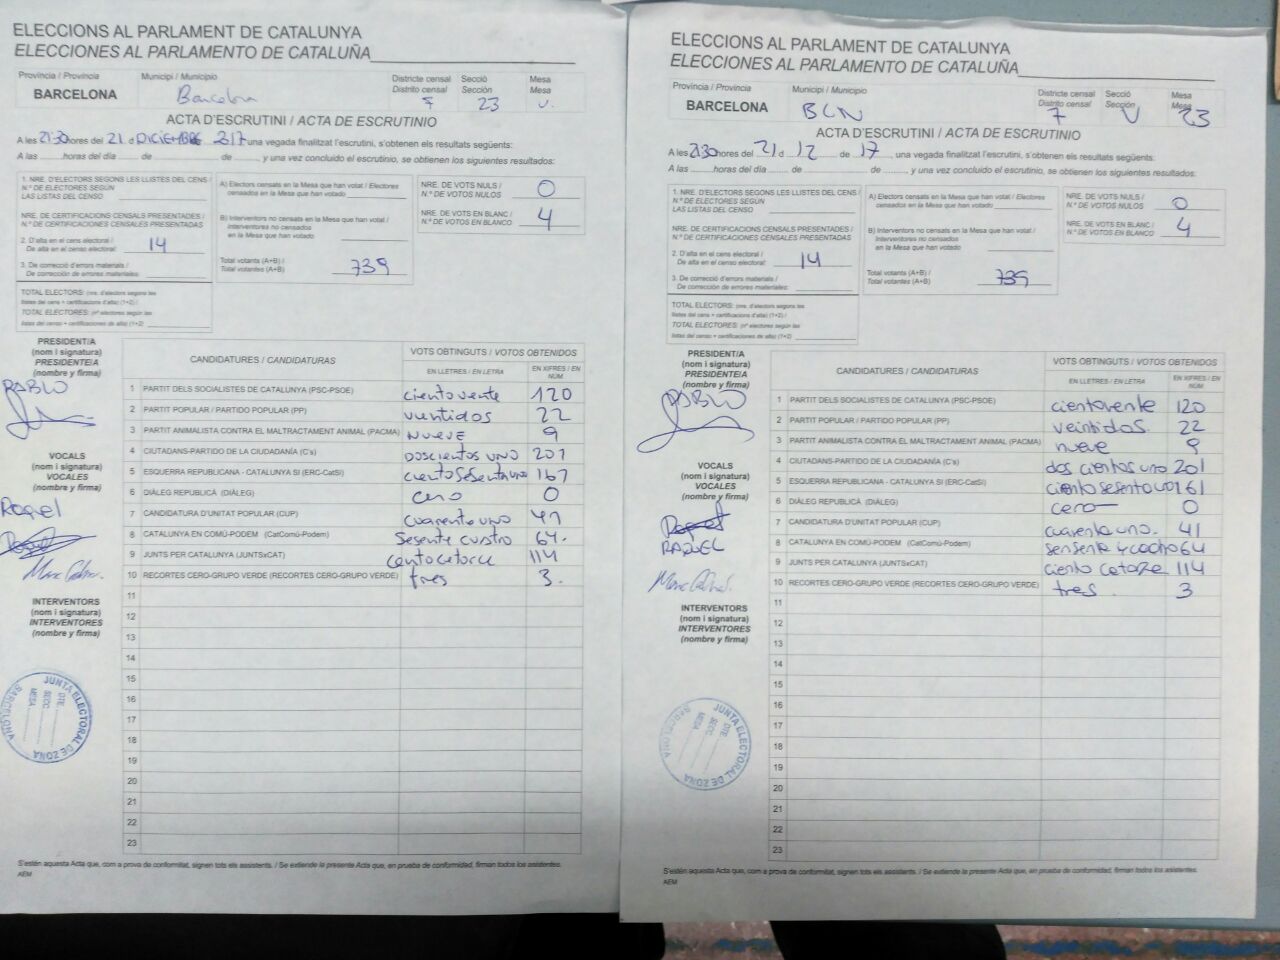 ELECCIONS AL PARLAMENT DE CATALUNYA
ELECCIONES AL PARLAMENTO DE CATALUÑA
Província / Provincia Municipi / Municipio Districte censal Secció Mesa
Distrito censal Sección Mesa
BARCELONA Barcelona 7 23 U.
ACTA D'ESCRUTINI / ACTA DE ESCRUTINIO
A les 21:30 hores del 21 d DICIEMBRE 2017 una vegada finalitzat l'escrutini, s'obtenen els resultats següents:
A las ......... horas del día ....... de ............ de ........., y una vez concluido el escrutinio, se obtienen los siguientes resultados:
1. NRE. D'ELECTORS SEGONS LES LLISTES DEL CENS /
N.º DE ELECTORES SEGÚN
LAS LISTAS DEL CENSO
NRE. DE CERTIFICACIONS CENSALS PRESENTADES /
N.º DE CERTIFICACIONES CENSALES PRESENTADAS
2. D'alta en el cens electoral /
De alta en el censo electoral: 14
3. De correcció d'errors materials /
De corrección de errores materiales:
TOTAL ELECTORS: (nre. d'electors segons les
llistes del cens + certificacions d'alta) (1+2) /
TOTAL ELECTORES: (nº electores según las
listas del censo + certificaciones de alta) (1+2)
A) Electors censats en la Mesa que han votat / Electores
censados en la Mesa que han votado
B) Interventors no censats en la Mesa que han votat /
Interventores no censados
en la Mesa que han votado
Total votants (A+B) /
Total votantes (A+B) 739
NRE. DE VOTS NULS /
N.º DE VOTOS NULOS 0
NRE. DE VOTS EN BLANC /
N.º DE VOTOS EN BLANCO 4
PRESIDENT/A
(nom i signatura)
PRESIDENTE/A
(nombre y firma)
PABLO
VOCALS
(nom i signatura)
VOCALES
(nombre y firma)
Raquel
INTERVENTORS
(nom i signatura)
INTERVENTORES
(nombre y firma)
JUNTA ELECTORAL DE ZONA
BARCELONA
DTE.
SECC.
MESA
CANDIDATURES / CANDIDATURAS VOTS OBTINGUTS / VOTOS OBTENIDOS
EN LLETRES / EN LETRA EN XIFRES / EN NÚM
1 PARTIT DELS SOCIALISTES DE CATALUNYA (PSC-PSOE) ciento vente 120
2 PARTIT POPULAR / PARTIDO POPULAR (PP) vuntidos 22
3 PARTIT ANIMALISTA CONTRA EL MALTRACTAMENT ANIMAL (PACMA) NUEVE 9
4 CIUTADANS-PARTIDO DE LA CIUDADANÍA (C's) DOSCIENTOS UNO 201
5 ESQUERRA REPUBLICANA - CATALUNYA SÍ (ERC-CatSí) ciento sesenta uno 161
6 DIÀLEG REPUBLICÀ (DIÀLEG) cero 0
7 CANDIDATURA D'UNITAT POPULAR (CUP) cuarenta uno 41
8 CATALUNYA EN COMÚ-PODEM (CatComú-Podem) Sesente cuatro 64.
9 JUNTS PER CATALUNYA (JUNTSxCAT) cento catorce 114
10 RECORTES CERO-GRUPO VERDE (RECORTES CERO-GRUPO VERDE) tres 3.
11
12
13
14
15
16
17
18
19
20
21
22
23
S'estén aquesta Acta que, com a prova de conformitat, signen tots els assistents. / Se extiende la presente Acta que, en prueba de conformidad, firman todos los asistentes.
AEM
ELECCIONS AL PARLAMENT DE CATALUNYA
ELECCIONES AL PARLAMENTO DE CATALUÑA
Província / Provincia Municipi / Municipio Districte censal Secció Mesa
Distrito censal Sección Mesa
BARCELONA BCN 7 U 23
ACTA D'ESCRUTINI / ACTA DE ESCRUTINIO
A les 21:30 hores del 21 d 12 de 17, una vegada finalitzat l'escrutini, s'obtenen els resultats següents:
A las ......... horas del día ....... de ............ de ........., y una vez concluido el escrutinio, se obtienen los siguientes resultados:
1. NRE. D'ELECTORS SEGONS LES LLISTES DEL CENS /
N.º DE ELECTORES SEGÚN
LAS LISTAS DEL CENSO
NRE. DE CERTIFICACIONS CENSALS PRESENTADES /
N.º DE CERTIFICACIONES CENSALES PRESENTADAS
2. D'alta en el cens electoral /
De alta en el censo electoral: 14
3. De correcció d'errors materials /
De corrección de errores materiales:
TOTAL ELECTORS: (nre. d'electors segons les
llistes del cens + certificacions d'alta) (1+2) /
TOTAL ELECTORES: (nº electores según las
listas del censo + certificaciones de alta) (1+2)
A) Electors censats en la Mesa que han votat / Electores
censados en la Mesa que han votado
B) Interventors no censats en la Mesa que han votat /
Interventores no censados
en la Mesa que han votado
Total votants (A+B) /
Total votantes (A+B) 739
NRE. DE VOTS NULS /
N.º DE VOTOS NULOS 0
NRE. DE VOTS EN BLANC /
N.º DE VOTOS EN BLANCO 4
PRESIDENT/A
(nom i signatura)
PRESIDENTE/A
(nombre y firma)
PABLO
VOCALS
(nom i signatura)
VOCALES
(nombre y firma)
Raquel
RAQUEL
INTERVENTORS
(nom i signatura)
INTERVENTORES
(nombre y firma)
JUNTA ELECTORAL DE ZONA
BARCELONA
DTE.
SECC.
MESA
CANDIDATURES / CANDIDATURAS VOTS OBTINGUTS / VOTOS OBTENIDOS
EN LLETRES / EN LETRA EN XIFRES / EN NÚM
1 PARTIT DELS SOCIALISTES DE CATALUNYA (PSC-PSOE) ciento vente 120
2 PARTIT POPULAR / PARTIDO POPULAR (PP) veintidos. 22
3 PARTIT ANIMALISTA CONTRA EL MALTRACTAMENT ANIMAL (PACMA) nueve 9
4 CIUTADANS-PARTIDO DE LA CIUDADANÍA (C's) dos cientos uno 201
5 ESQUERRA REPUBLICANA - CATALUNYA SÍ (ERC-CatSí) ciento sesento uno 161
6 DIÀLEG REPUBLICÀ (DIÀLEG) cero 0
7 CANDIDATURA D'UNITAT POPULAR (CUP) cuarenta uno. 41
8 CATALUNYA EN COMÚ-PODEM (CatComú-Podem) 64
9 JUNTS PER CATALUNYA (JUNTSxCAT) ciento 114
10 RECORTES CERO-GRUPO VERDE (RECORTES CERO-GRUPO VERDE) tres. 3
11
12
13
14
15
16
17
18
19
20
21
22
23
S'estén aquesta Acta que, com a prova de conformitat, signen tots els assistents. / Se extiende la presente Acta que, en prueba de conformidad, firman todos los asistentes.
AEM